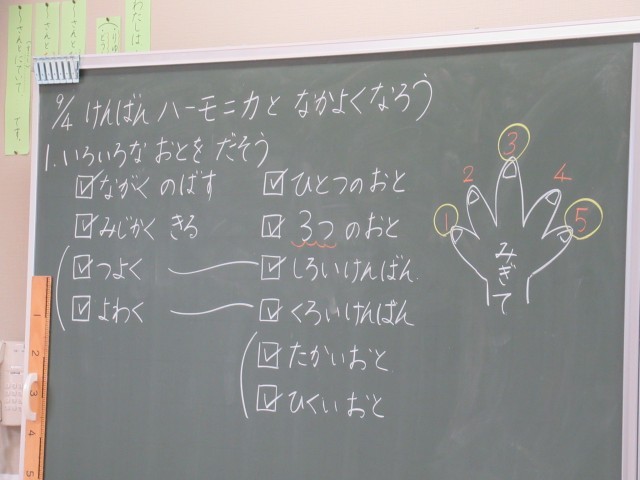 わたしは
〜さんと
〜さんと
〜さんとにていて
です。
9/4 けんばん ハーモニカと なかよくなろう
1. いろいろな おとを だそう
☑ ながく のばす
☑ みじかく きる
☑ つよく
☑ よわく
☑ ひとつの おと
☑ 3つ の おと
☑ しろいけんばん
☑ くろいけんばん
☑ たかいおと
☑ ひくい おと
1 2 3 4 5
みぎて
1
2
3
4
5